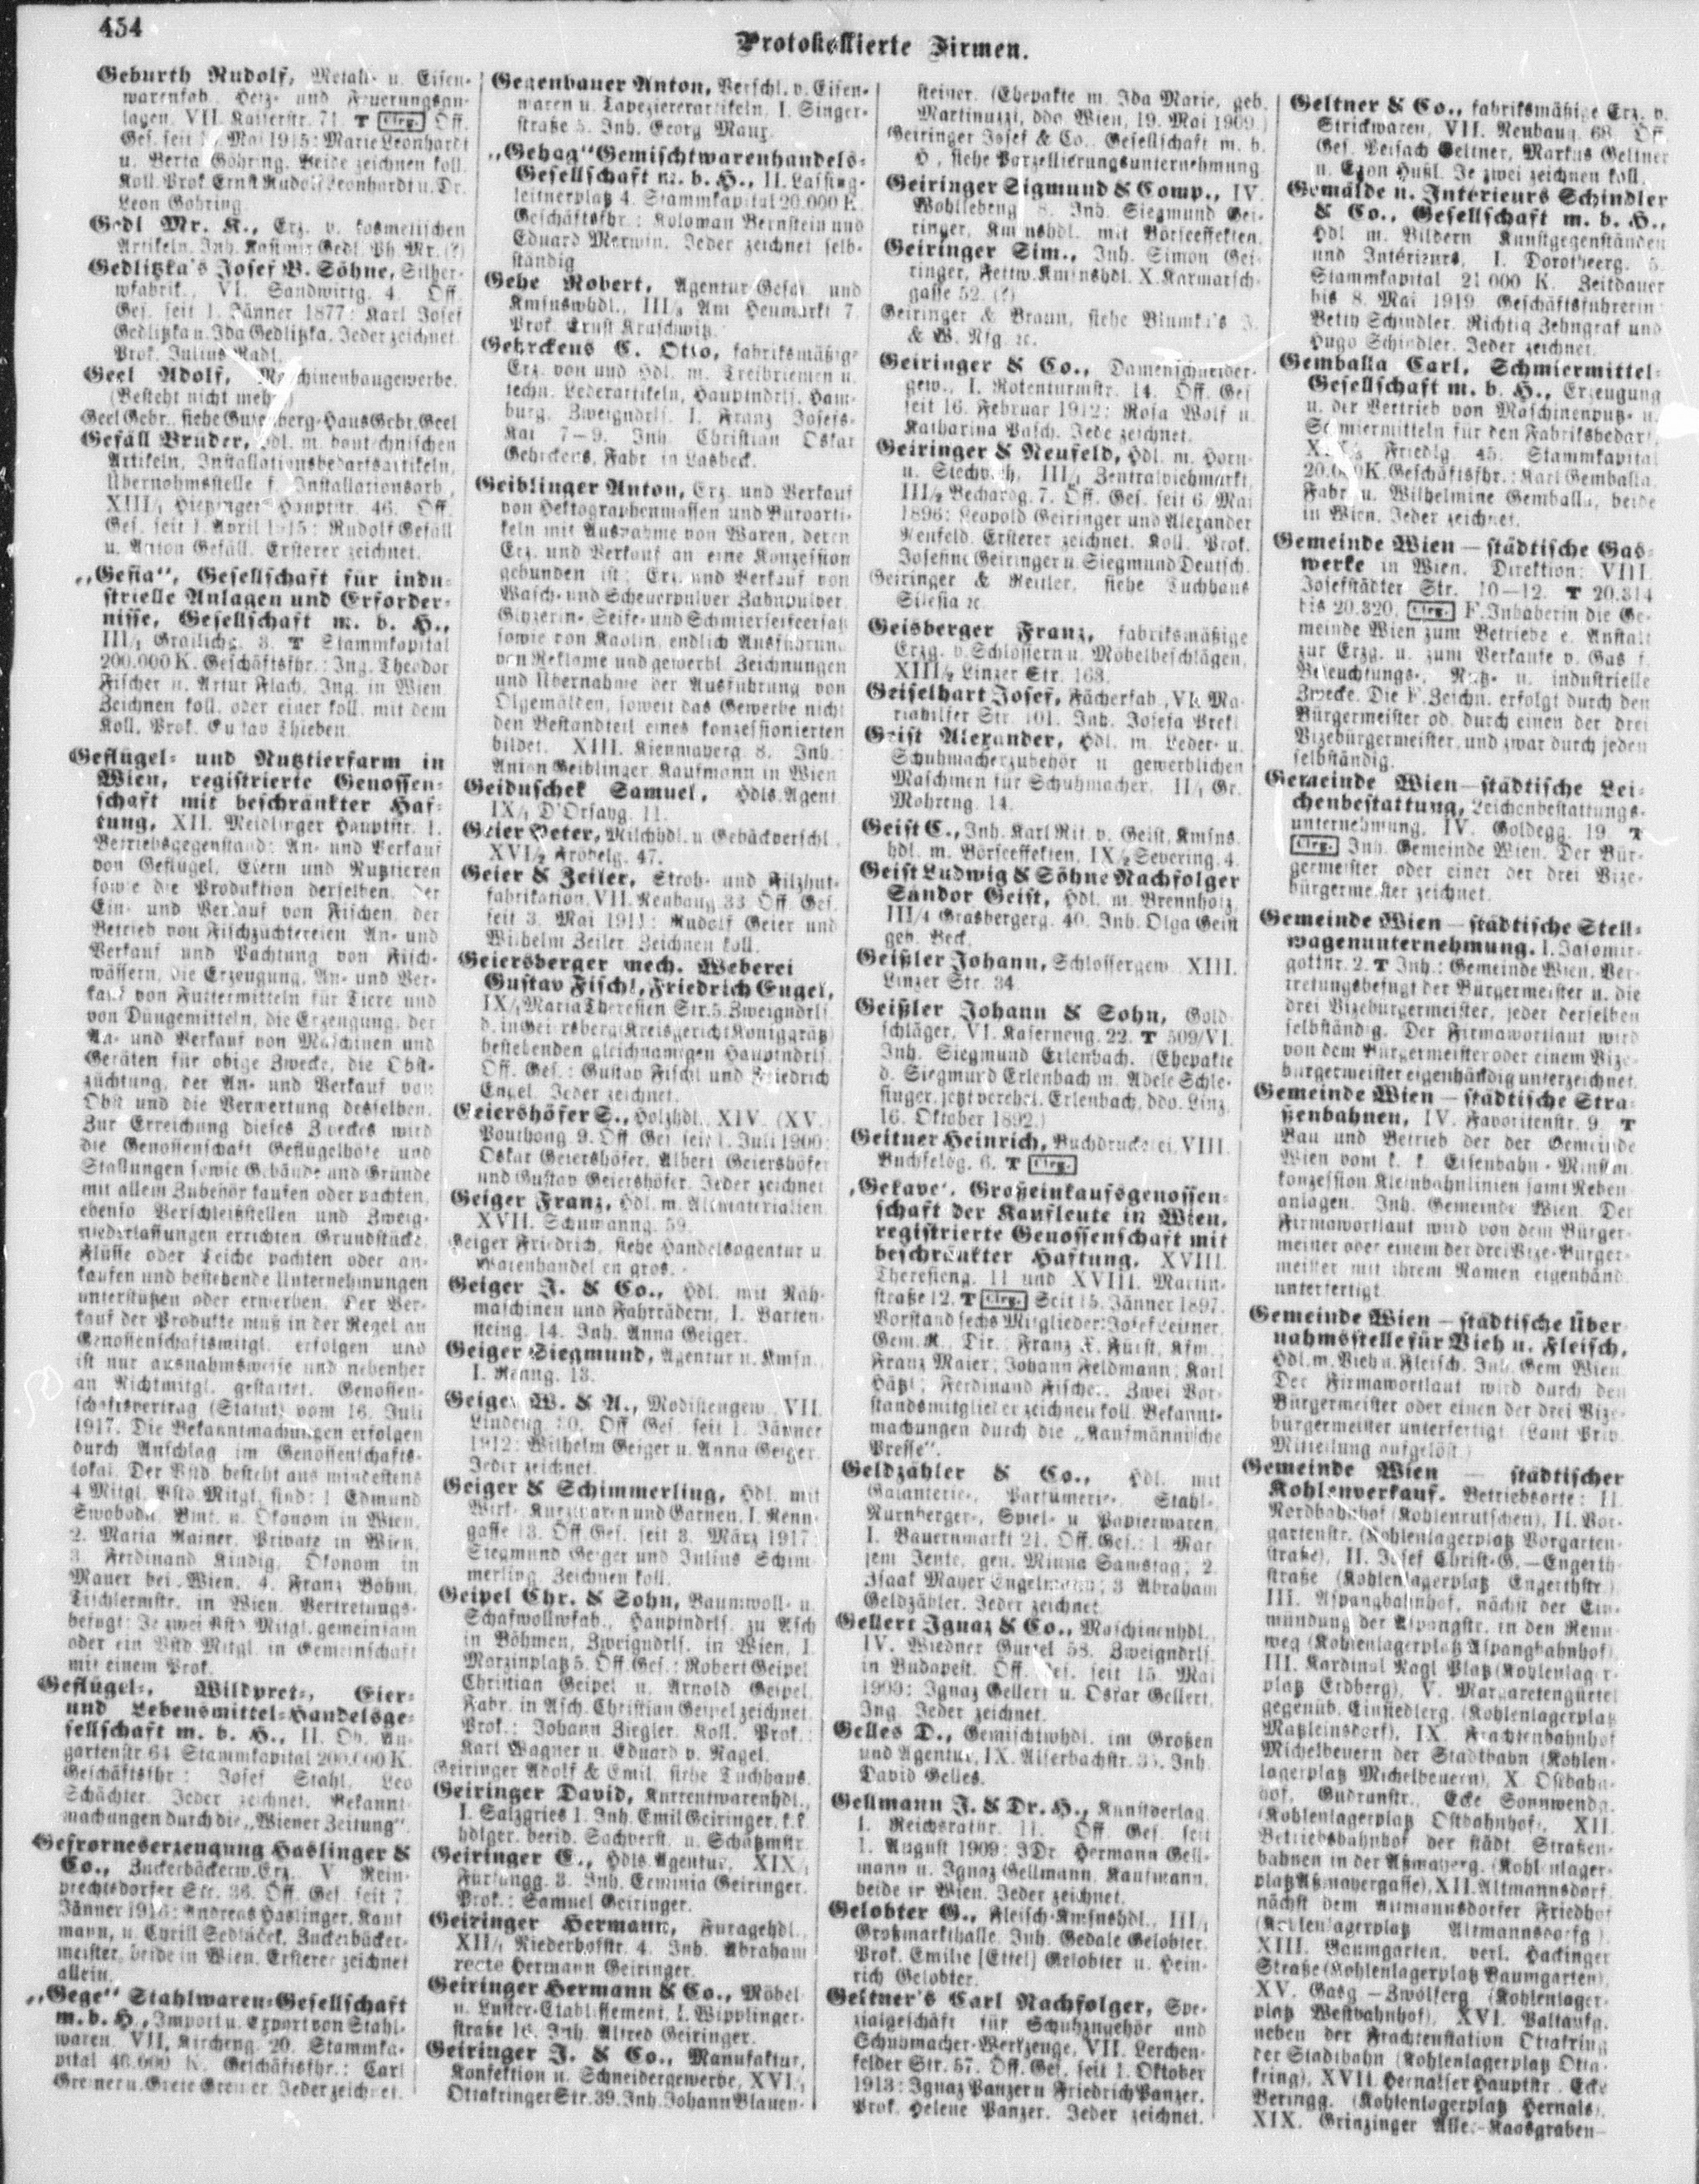 454
Protokollierte Firmen.
Geburth Rudolf, Metall- u. Eisen-
warenfab. Herz- und Feuerungsan-
lagen, VII. Kaiserstr. 71. T Clrg. Off.
Ges. seit Mai 1915: Marie Leonhardt
u. Berta Göhring. Beide zeichnen koll.
Koll. Prok. Ernst Rudolf Leonhardt u. Dr.
Leon Göhring.
Gedl Mr. K., Erz. v. kosmetischen
Artikeln. Inh. Kasimir Gedl, Ph. Mr. (?)
Gedlitzka's Josef B. Söhne, Silber-
wfabrik., VI. Sandwirtg. 4. Off.
Ges. seit 1. Jänner 1877: Karl Josef
Gedlitzka u. Ida Gedlitzka. Jeder zeichnet.
Prok. Julius Radl.
Geel Adolf, Maschinenbaugewerbe.
(Besteht nicht mehr)
Geel Gebr., siehe Gutenberg-Haus Gebr. Geel
Gefäll Brüder, Hdl. m. bautechnischen
Artikeln, Installationsbedarfsartikeln,
Übernahmsstelle f. Installationsarb.,
XIII/1 Hietzinger Hauptstr. 46. Off.
Ges. seit 1. April 1915: Rudolf Gefäll
u. Anton Gefäll. Ersterer zeichnet.
„Gefia“, Gesellschaft für indu-
strielle Anlagen und Erforder-
nisse, Gesellschaft m. b. H.,
III/1 Grailichg. 3. T Stammkapital
200.000 K. Geschäftsfhr.: Ing. Theodor
Fischer u. Artur Flach, Ing. in Wien.
Zeichnen koll. oder einer koll. mit dem
Koll. Prok. Gustav Thieben.
Geflügel- und Nutztierfarm in
Wien, registrierte Genossen-
schaft mit beschränkter Haf-
tung, XII. Meidlinger Hauptstr. 1.
Betriebsgegenstand: An- und Verkauf
von Geflügel, Eiern und Nutztieren
sowie die Produktion derselben, der
Ein- und Verkauf von Fischen, der
Betrieb von Fischzüchtereien An- und
Verkauf und Pachtung von Fisch-
wässern, die Erzeugung, An- und Ver-
kauf von Futtermitteln für Tiere und
von Düngemitteln, die Erzeugung, der
An- und Verkauf von Maschinen und
Geräten für obige Zwecke, die Obst-
züchtung, der An- und Verkauf von
Obst und die Verwertung desselben.
Zur Erreichung dieses Zweckes wird
die Genossenschaft Geflügelhöfe und
Stallungen sowie Gebäude und Gründe
mit allem Zubehör kaufen oder pachten,
ebenso Verschleißstellen und Zweig-
niederlassungen errichten, Grundstücke,
Flüsse oder Teiche pachten oder an-
kaufen und bestehende Unternehmungen
unterstützen oder erwerben. Der Ver-
kauf der Produkte muß in der Regel an
Genossenschaftsmitgl. erfolgen und
ist nur ausnahmsweise und nebenher
an Nichtmitgl. gestattet. Genossen-
schaftsvertrag (Statut) vom 16. Juli
1917. Die Bekanntmachungen erfolgen
durch Anschlag im Genossenschafts-
lokal. Der Vstd. besteht aus mindestens
4 Mitgl. Vstd. Mitgl. sind: 1. Edmund
Swoboda, Bmt. u. Ökonom in Wien,
2. Maria Rainer, Private in Wien,
3. Ferdinand Kindig, Ökonom in
Mauer bei Wien, 4. Franz Böhm,
Tischlermstr. in Wien. Vertretungs-
befugt: Je zwei Vstd. Mitgl. gemeinsam
oder ein Vstd. Mitgl. in Gemeinschaft
mit einem Prok.
Geflügel-, Wildpret-, Eier-
und Lebensmittel-Handelsge-
sellschaft m. b. H., II. Ob. Au-
gartenstr. 64. Stammkapital 200.000 K.
Geschäftsfhr.: Josef Stahl, Leo
Schächter. Jeder zeichnet. Bekannt-
machungen durch die „Wiener Zeitung“.
Gefrorneserzeugung Haslinger &
Co., Zuckerbäckerw. Erz. V. Rein-
prechtsdorfer Str. 36. Off. Ges. seit 7.
Jänner 1916: Andreas Haslinger, Kauf-
mann, u. Cyrill Sedláček, Zuckerbäcker-
meister, beide in Wien. Ersterer zeichnet
allein.
„Gege“ Stahlwaren-Gesellschaft
m. b. H., Import u. Export von Stahl-
waren, VII. Kircheng. 20. Stammka-
pital 40.000 K. Geschäftsfhr.: Carl
Greiner u. Grete Greiner. Jeder zeichnet.
Gegenbauer Anton, Verschl. v. Eisen-
waren u. Tapeziererartikeln, I. Singer-
straße 5. Inh. Georg Maux.
„Gehag“ Gemischtwarenhandels-
Gesellschaft m. b. H., II. Lassing-
leitnerplatz 4. Stammkapital 20.000 K.
Geschäftsfhr.: Koloman Bernstein und
Eduard Merwin. Jeder zeichnet selb-
ständig.
Gehe Robert, Agentur Gesch. und
Kmsnswhdl., III/3 Am Heumarkt 7.
Prok. Ernst Kraschwitz.
Gehrckens C. Otto, fabriksmäßige
Erz. von und Hdl. m. Treibriemen u.
techn. Lederartikeln, Hauptndrls. Ham-
burg. Zweigndrls. I. Franz Josefs-
Kai 7—9. Inh. Christian Oskar
Gehrckens, Fabr. in Lasbeck.
Geiblinger Anton, Erz. und Verkauf
von Hektographenmassen und Büroarti-
keln mit Ausnahme von Waren, deren
Erz. und Verkauf an eine Konzession
gebunden ist; Erz. und Verkauf von
Wasch- und Scheuerpulver Zahnpulver,
Glyzerin- Seife- und Schmierseifeersatz
sowie von Kaolin, endlich Ausführung
von Reklame und gewerbl. Zeichnungen
und Übernahme der Ausführung von
Ölgemälden, soweit das Gewerbe nicht
den Bestandteil eines konzessionierten
bildet. XIII. Kienmayerg. 8. Inh.
Anton Geiblinger, Kaufmann in Wien
Geiduschek Samuel, Hdls. Agent.
IX/1 D'Orsayg. 11.
Geier Peter, Milchhdl. u. Gebäckverschl.,
XVI/2 Fröbelg. 47.
Geier & Zeiler, Stroh- und Filzhut-
fabrikation, VII. Neubaug. 33. Off. Ges.
seit 3. Mai 1911: Rudolf Geier und
Wilhelm Zeiler. Zeichnen koll.
Geiersberger mech. Weberei
Gustav Fischl, Friedrich Engel,
IX/1 Maria Theresien Str. 5. Zweigndrls.
d. in Geiersberg (Kreisgericht Königgrätz)
bestehenden gleichnamigen Hauptndrls.
Off. Ges.: Gustav Fischl und Friedrich
Engel. Jeder zeichnet.
Geiershöfer S., Holzhdl., XIV. (XV.)
Pouthong. 9. Off. Ges. seit 1. Juli 1900:
Oskar Geiershöfer, Albert Geiershöfer
und Gustav Geiershöfer. Jeder zeichnet
Geiger Franz, Hdl. m. Altmaterialien.
XVII. Schumanng. 59.
Geiger Friedrich, siehe Handelsagentur u.
Warenhandel en gros.
Geiger J. & Co., Hdl. mit Näh-
maschinen und Fahrrädern, I. Barten-
steing. 14. Inh. Anna Geiger.
Geiger Siegmund, Agentur u. Kmsn.,
I. Renng. 13.
Geiger W. & A., Modistengew., VII.
Lindeng. Off. Ges. seit 1. Jänner
1912: Wilhelm Geiger u. Anna Geiger.
Jeder zeichnet.
Geiger & Schimmerling, Hdl. mit
Wirk-, Kurzwaren und Garnen, I. Renn-
gasse 13. Off. Ges. seit 3. März 1917:
Siegmund Geiger und Julius Schim-
merling. Zeichnen koll.
Geipel Chr. & Sohn, Baumwoll- u.
Schafwollwfab., Hauptndrls. zu Asch
in Böhmen, Zweigndrls. in Wien, I.
Morzinplatz 5. Off. Ges.: Robert Geipel
Christian Geipel u. Arnold Geipel,
Fabr. in Asch. Christian Geipel zeichnet.
Prok.: Johann Ziegler. Koll. Prok.:
Karl Wagner u. Eduard v. Nagel.
Geiringer Adolf & Emil, siehe Tuchhaus.
Geiringer David, Kurrentwarenhdl.,
I. Salzgries 1. Inh. Emil Geiringer, k. k.
hdlger. beeid. Sachverst. u. Schätzmstr.
Geiringer E., Hdls. Agentur, XIX/1
Fürfangg. 3. Inh. Erminia Geiringer.
Prok.: Samuel Geiringer.
Geiringer Hermann, Furagehdl.,
XII/1 Niederhofstr. 4. Inh. Abraham
recte Hermann Geiringer.
Geiringer Hermann & Co., Möbel-
u. Luster-Etablissement, I. Wipplinger-
straße 16. Inh. Alfred Geiringer.
Geiringer J. & Co., Manufaktur,
Konfektion u. Schneidergewerbe, XVI/1
Ottakringer Str. 39. Inh. Johann Blauen-
steiner. (Ehepakte m. Ida Marie, geb.
Martinuzzi, ddo. Wien, 19. Mai 1909.)
Geiringer Josef & Co., Gesellschaft m. b.
H., siehe Parzellierungsunternehmung
Geiringer Sigmund & Comp., IV.
Wohllebeng. 8. Inh. Siegmund Gei-
ringer, Kmsnshdl. mit Börseeffekten.
Geiringer Sim., Inh. Simon Gei-
ringer, Fettw. Kmsnshdl. X. Karmarsch-
gasse 52. (?)
Geiringer & Braun, siehe Blumka's J.
& W. Nfg. ꝛc.
Geiringer & Co., Damenschneider-
gew., I. Rotenturmstr. 14. Off. Ges
seit 16. Februar 1912: Rosa Wolf u.
Katharina Pasch. Jede zeichnet.
Geiringer & Neufeld, Hdl. m. Horn-
u. Stechvieh, III/1 Zentralviehmarkt,
III/2 Bechardg. 7. Off. Ges. seit 6. Mai
1896: Leopold Geiringer und Alexander
Neufeld. Ersterer zeichnet. Koll. Prok.
Josefine Geiringer u. Siegmund Deutsch.
Geiringer & Reitler, siehe Tuchhaus
Silesia ꝛc.
Geisberger Franz, fabriksmäßige
Erzg. v. Schlössern u. Möbelbeschlägen,
XIII/2 Linzer Str. 163.
Geiselhart Josef, Fächerfab., VI. Ma-
riahilfer Str. 101. Inh. Josefa Brekl
Geist Alexander, Hdl. m. Leder- u.
Schuhmacherzubehör u. gewerblichen
Maschinen für Schuhmacher, II/1 Gr.
Mohreng. 14.
Geist C., Inh. Karl Rit. v. Geist, Kmsns.
hdl. m. Börseeffekten, IX/2 Severing. 4.
Geist Ludwig & Söhne Nachfolger
Sandor Geist, Hdl. m. Brennholz,
III/4 Grasbergerg. 40. Inh. Olga Geist
geb. Beck.
Geißler Johann, Schlossergew., XIII.
Linzer Str. 34.
Geißler Johann & Sohn, Gold-
schläger, VI. Kaserneng. 22. T 509/VI.
Inh. Siegmund Erlenbach. (Ehepakte
d. Siegmund Erlenbach m. Adele Schle-
singer, jetzt verehel. Erlenbach, ddo. Linz,
16. Oktober 1892.)
Geitner Heinrich, Buchdruckerei, VIII.
Buchfeldg. 6. T Clrg.
„Gekave“, Großeinkaufsgenossen-
schaft der Kaufleute in Wien,
registrierte Genossenschaft mit
beschränkter Haftung, XVIII.
Theresieng. 11 und XVIII. Martin-
straße 12. T Clrg. Seit 15. Jänner 1897.
Vorstand sechs Mitglieder: Josef Leitner,
Gem. R., Dir.; Franz X. Fürst, Kfm.;
Franz Maier; Johann Feldmann; Karl
Hätzl; Ferdinand Fischer. Zwei Vor-
standsmitglieder zeichnen koll. Bekannt-
machungen durch die „Kaufmännische
Presse“.
Geldzähler & Co., Hdl. mit
Galanterie-, Parfümerie-, Stahl-,
Nürnberger-, Spiel- u. Papierwaren,
I. Bauernmarkt 21. Off. Ges.: 1. Mar-
jem Jente, gen. Minna Samstag; 2.
Isaak Mayer Engelmann; 3. Abraham
Geldzähler. Jeder zeichnet.
Gellert Ignaz & Co., Maschinenhdl.
IV. Wiedner Gürtel 58. Zweigndrls.
in Budapest. Off. Ges. seit 15. Mai
1909: Ignaz Gellert u. Oskar Gellert,
Ing. Jeder zeichnet.
Gelles D., Gemischtwhdl. im Großen
und Agentur, IX. Alserbachstr. Inh.
David Gelles.
Gellmann J. & Dr. H., Kunstverlag,
I. Reichsratsstr. 11. Off. Ges. seit
1. August 1909: JDr. Hermann Gell-
mann u. Ignaz Gellmann, Kaufmann,
beide in Wien. Jeder zeichnet.
Gelobter G., Fleisch-Kmsnshdl., III/1
Großmarkthalle. Inh. Gedale Gelobter.
Prok. Emilie (Ettel) Gelobter u. Hein-
rich Gelobter.
Geltner's Carl Nachfolger, Spe-
zialgeschäft für Schuhzugehör und
Schuhmacher-Werkzeuge, VII. Lerchen-
felder Str. 57. Off. Ges. seit 1. Oktober
1913: Ignaz Panzer u. Friedrich Panzer.
Prok. Helene Panzer. Jeder zeichnet.
Geltner & Co., fabriksmäßige Erz. v.
Strickwaren, VII. Neubaug. 68. Off.
Ges. Peisach Geltner, Markus Geltner
u. Egon Hüßl. Je zwei zeichnen koll.
Gemälde u. Interieurs Schindler
& Co., Gesellschaft m. b. H.,
Hdl. m. Bildern Kunstgegenständen
und Intérieurs, I. Dorotheerg. 5.
Stammkapital 21.000 K. Zeitdauer
bis 8. Mai 1919. Geschäftsführerin:
Betty Schindler. Richtig Zehngraf und
Hugo Schindler. Jeder zeichnet.
Gemballa Carl, Schmiermittel-
Gesellschaft m. b. H., Erzeugung
u. der Vertrieb von Maschinenputz- u.
Schmiermitteln für den Fabriksbedarf,
Friedlg. 45. Stammkapital
20.000 K. Geschäftsfhr.: Karl Gemballa,
Fabr. u. Wilhelmine Gemballa, beide
in Wien. Jeder zeichnet.
Gemeinde Wien — städtische Gas-
werke in Wien. Direktion: VIII.
Josefstädter Str. 10—12. T 20.314
bis 20.320. Clrg. F. Inhaberin die Ge-
meinde Wien zum Betriebe e. Anstalt
zur Erzg. u. zum Verkaufe v. Gas f.
Beleuchtungs-, Nutz- u. industrielle
Zwecke. Die F. Zeichn. erfolgt durch den
Bürgermeister od. durch einen der drei
Vizebürgermeister, und zwar durch jeden
selbständig.
Gemeinde Wien — städtische Lei-
chenbestattung, Leichenbestattungs-
unternehmung, IV. Goldegg. 19. T
Clrg. Inh. Gemeinde Wien. Der Bür-
germeister oder einer der drei Vize-
bürgermeister zeichnet.
Gemeinde Wien — städtische Stell-
wagenunternehmung. I. Jasomir-
gottstr. 2. T Inh.: Gemeinde Wien. Ver-
tretungsbefugt der Bürgermeister u. die
drei Vizebürgermeister, jeder derselben
selbständig. Der Firmawortlaut wird
von dem Bürgermeister oder einem Vize-
bürgermeister eigenhändig unterzeichnet.
Gemeinde Wien — städtische Stra-
ßenbahnen, IV. Favoritenstr. 9. T
Bau und Betrieb der der Gemeinde
Wien vom k. k. Eisenbahn-Minst. m.
konzession. Kleinbahnlinien samt Neben-
anlagen. Inh. Gemeinde Wien. Der
Firmawortlaut wird von dem Bürger-
meister oder einem der drei Vize-Bürger-
meister mit ihrem Namen eigenhänd.
unterfertigt.
Gemeinde Wien — städtische Über-
nahmsstelle für Vieh u. Fleisch,
Hdl. m. Vieh u. Fleisch. Inh. Gem. Wien.
Der Firmawortlaut wird durch den
Bürgermeister oder einen der drei Vize-
bürgermeister unterfertigt. (Laut Priv.
Mitteilung aufgelöst.)
Gemeinde Wien — städtischer
Kohlenverkauf. Betriebsorte: II.
Nordbahnhof (Kohlenrutschen), II. Vor-
gartenstr. (Kohlenlagerplatz Vorgarten-
straße), II. Josef Christ-G.—Engerth-
straße (Kohlenlagerplatz Engerthstr.)
III. Aspangbahnhof, nächst der Ein-
mündung der Aspangstr. in den Renn-
weg (Kohlenlagerplatz Aspangbahnhof),
III. Kardinal Nagl Platz (Kohlenlager-
platz Erdberg), V. Margaretengürtel
gegenüb. Einsiedlerg. (Kohlenlagerplatz
Matzleinsdorf), IX. Frachtenbahnhof
Michelbeuern der Stadtbahn (Kohlen-
lagerplatz Michelbeuern), X. Ostbahn-
hof, Gudrunstr., Ecke Sonnwendg.
(Kohlenlagerplatz Ostbahnhof), XII.
Betriebsbahnhof der städt. Straßen-
bahnen in der Aßmayerg. (Kohlenlager-
platz Aßmayergasse), XII. Altmannsdorf,
nächst dem Altmannsdorfer Friedhof
(Kohlenlagerplatz Altmannsdorf),
XIII. Baumgarten, verl. Hackinger
Straße (Kohlenlagerplatz Baumgarten),
XV. Gasg.—Zwölferg. (Kohlenlager-
platz Westbahnhof), XVI. Paltaufg.
neben der Frachtenstation Ottakring
der Stadtbahn (Kohlenlagerplatz Otta-
kring), XVII. Hernalser Hauptstr., Ecke
Beringg. (Kohlenlagerplatz Hernals),
XIX. Grinzinger Allee-Kaasgraben-